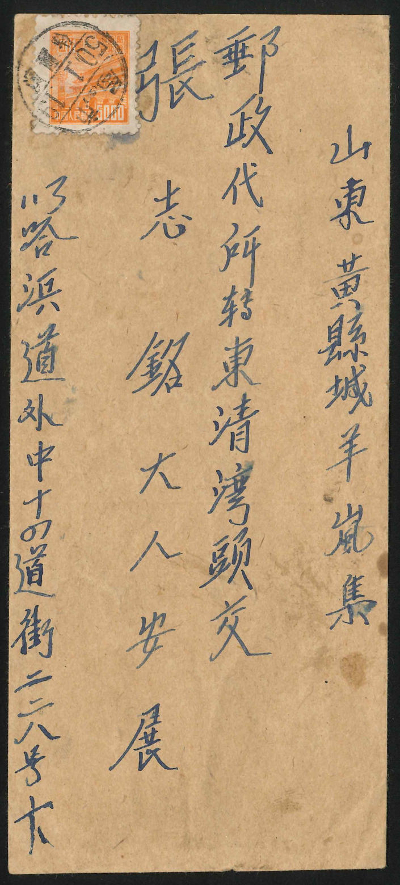 山東黃縣城羊嵐集
郵政代所转東清灣頭交
張志銘大人安展
哈浜道外中十四道街二二八号卞
5000